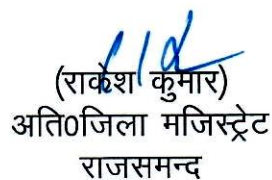 (राकेश कुमार)
अति0जिला मजिस्ट्रेट
राजसमन्द